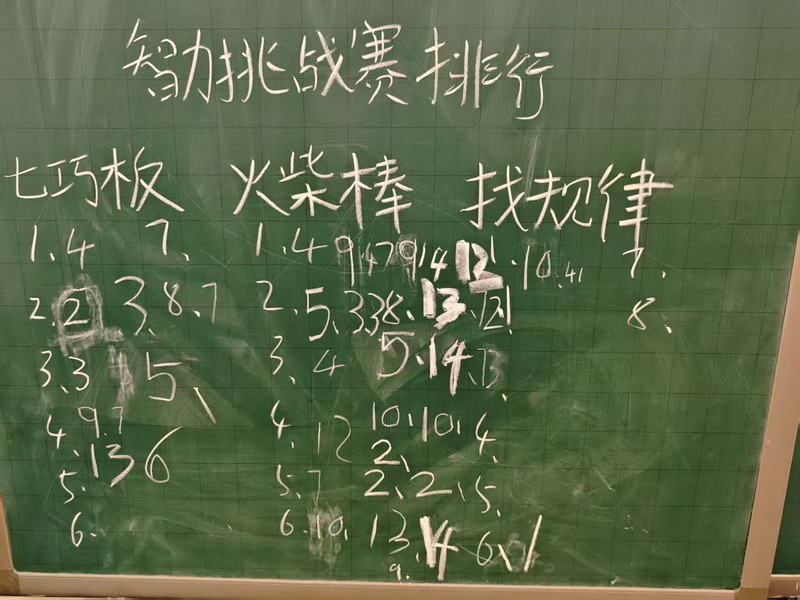 智力挑战赛排行
七巧板 火柴棒 找规律
1.4 7、 1.4 9 14 12 10.41 7.
2.2 3、8、7 2、5、3、38、13、12 8、
3、3 5、 3、4 5、14、13、
4、9、7 4、12 10、10、4、
136 2、
5、 5、7 2、2、5、
6、 6、10、13、14 6、1
9、